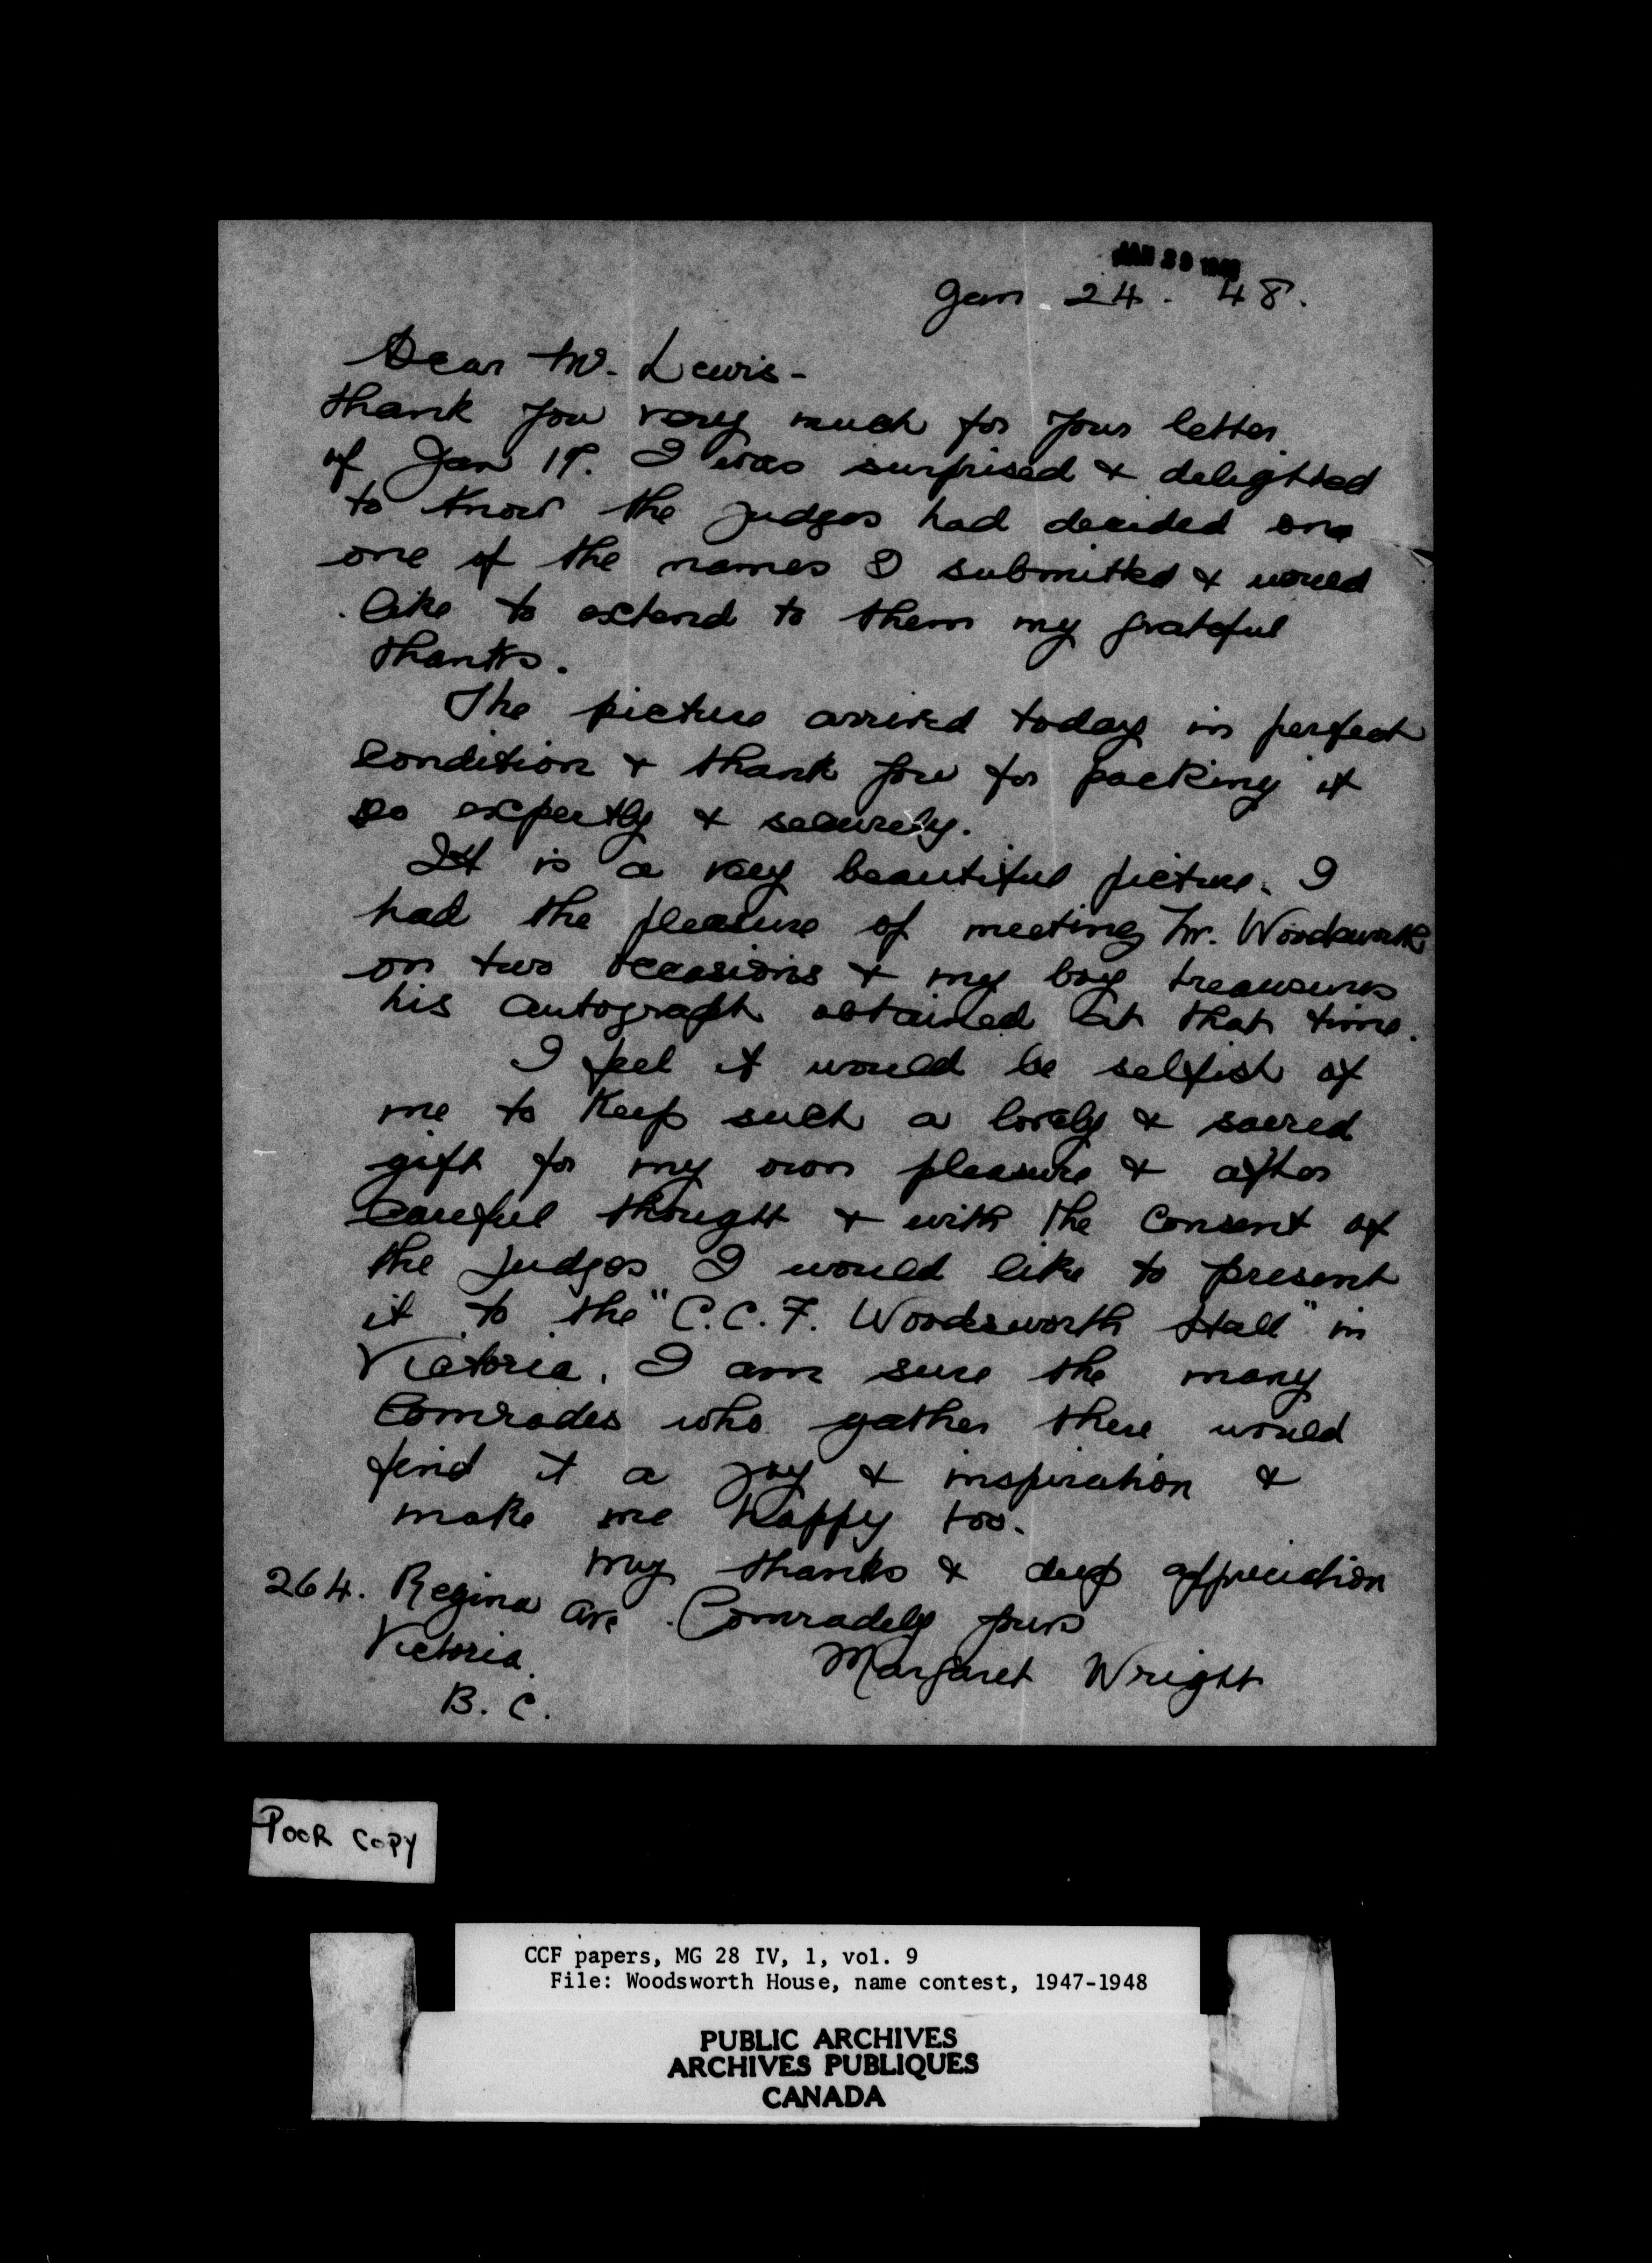 JAN 29 1948
Jan. 24. 48.
Dear Mr. Lewis-
Thank you very much for your letter
of Jan 19. I was surprised & delighted
to know the judges had decided on
one of the names I submitted & would
like to extend to them my grateful
thanks.
The picture arrived today in perfect
condition & thank you for packing it
so expertly & securely.
It is a very beautiful picture. I
had the pleasure of meeting Mr. Woodsworth
on two occasions & my boy treasures
his autograph obtained at that time.
I feel it would be selfish of
me to keep such a lovely & sacred
gift for my own pleasure & after
careful thought & with the consent of
the judges I would like to present
it to the "C.C.F. Woodsworth Hall" in
Victoria. I am sure the many
Comrades who gather there would
find it a joy & inspiration &
make me happy too.
My thanks & deep appreciation
Comradely yours
Margaret Wright
264. Regina Ave
Victoria.
B. C.
POOR COPY
CCF papers, MG 28 IV, 1, vol. 9
File: Woodsworth House, name contest, 1947-1948
PUBLIC ARCHIVES
ARCHIVES PUBLIQUES
CANADA